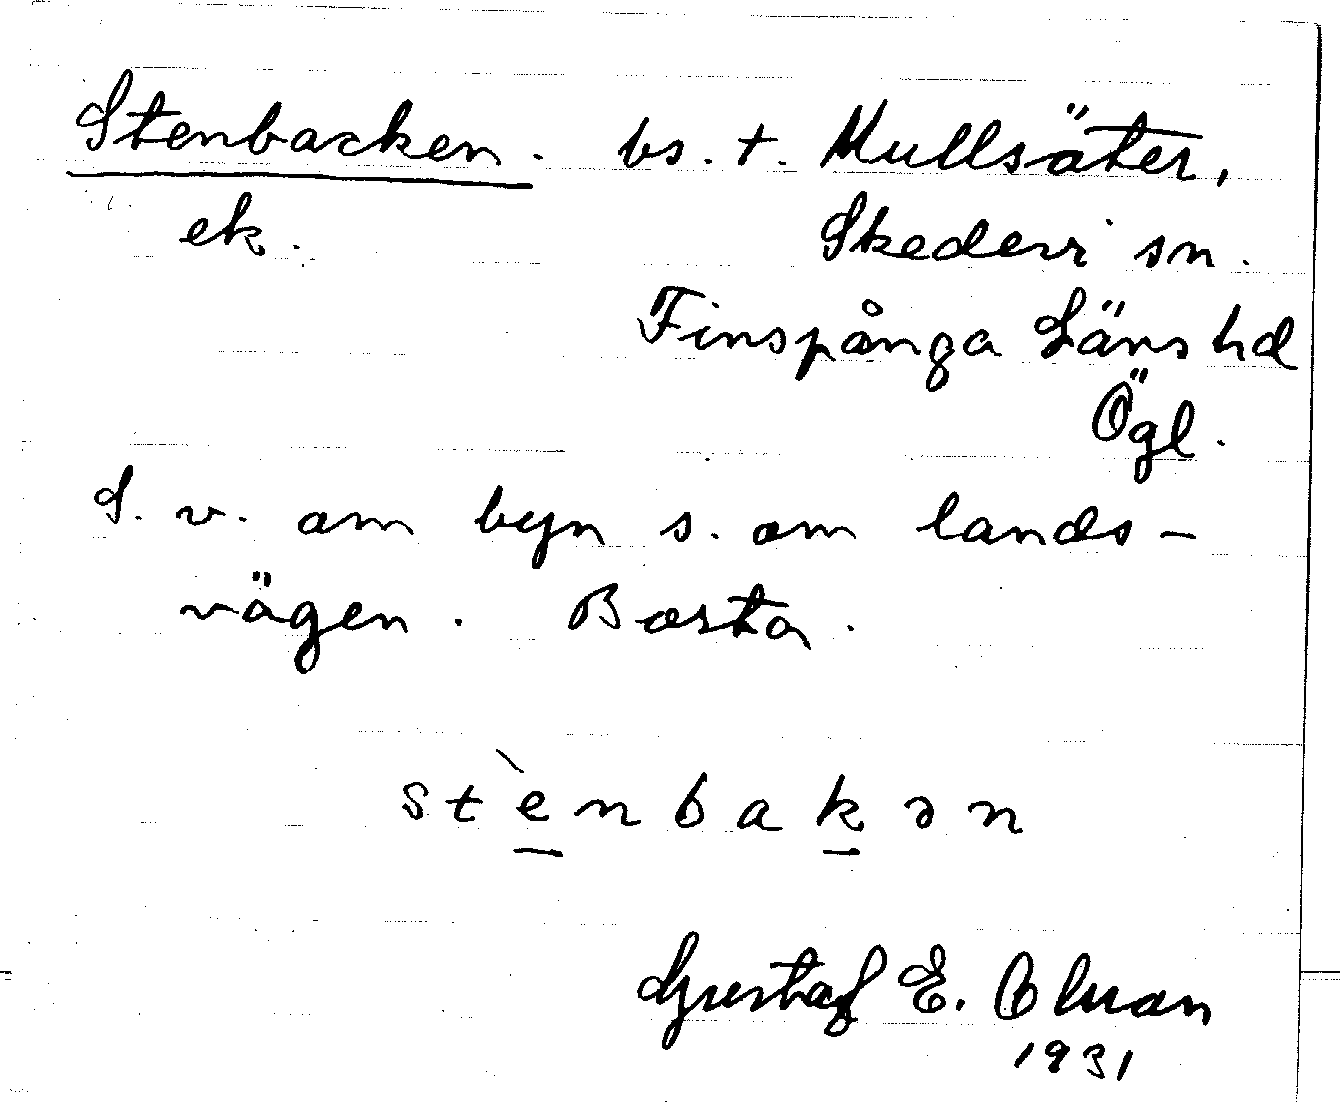 Stenbacken. bs. t. Mullsäter,
ek. Skedevi sn.
Finspånga Läns hd
Ögl.
S. v. om byn s. om lands-
vägen. Borta.
stènbakən
Gustaf E. Olson
1931